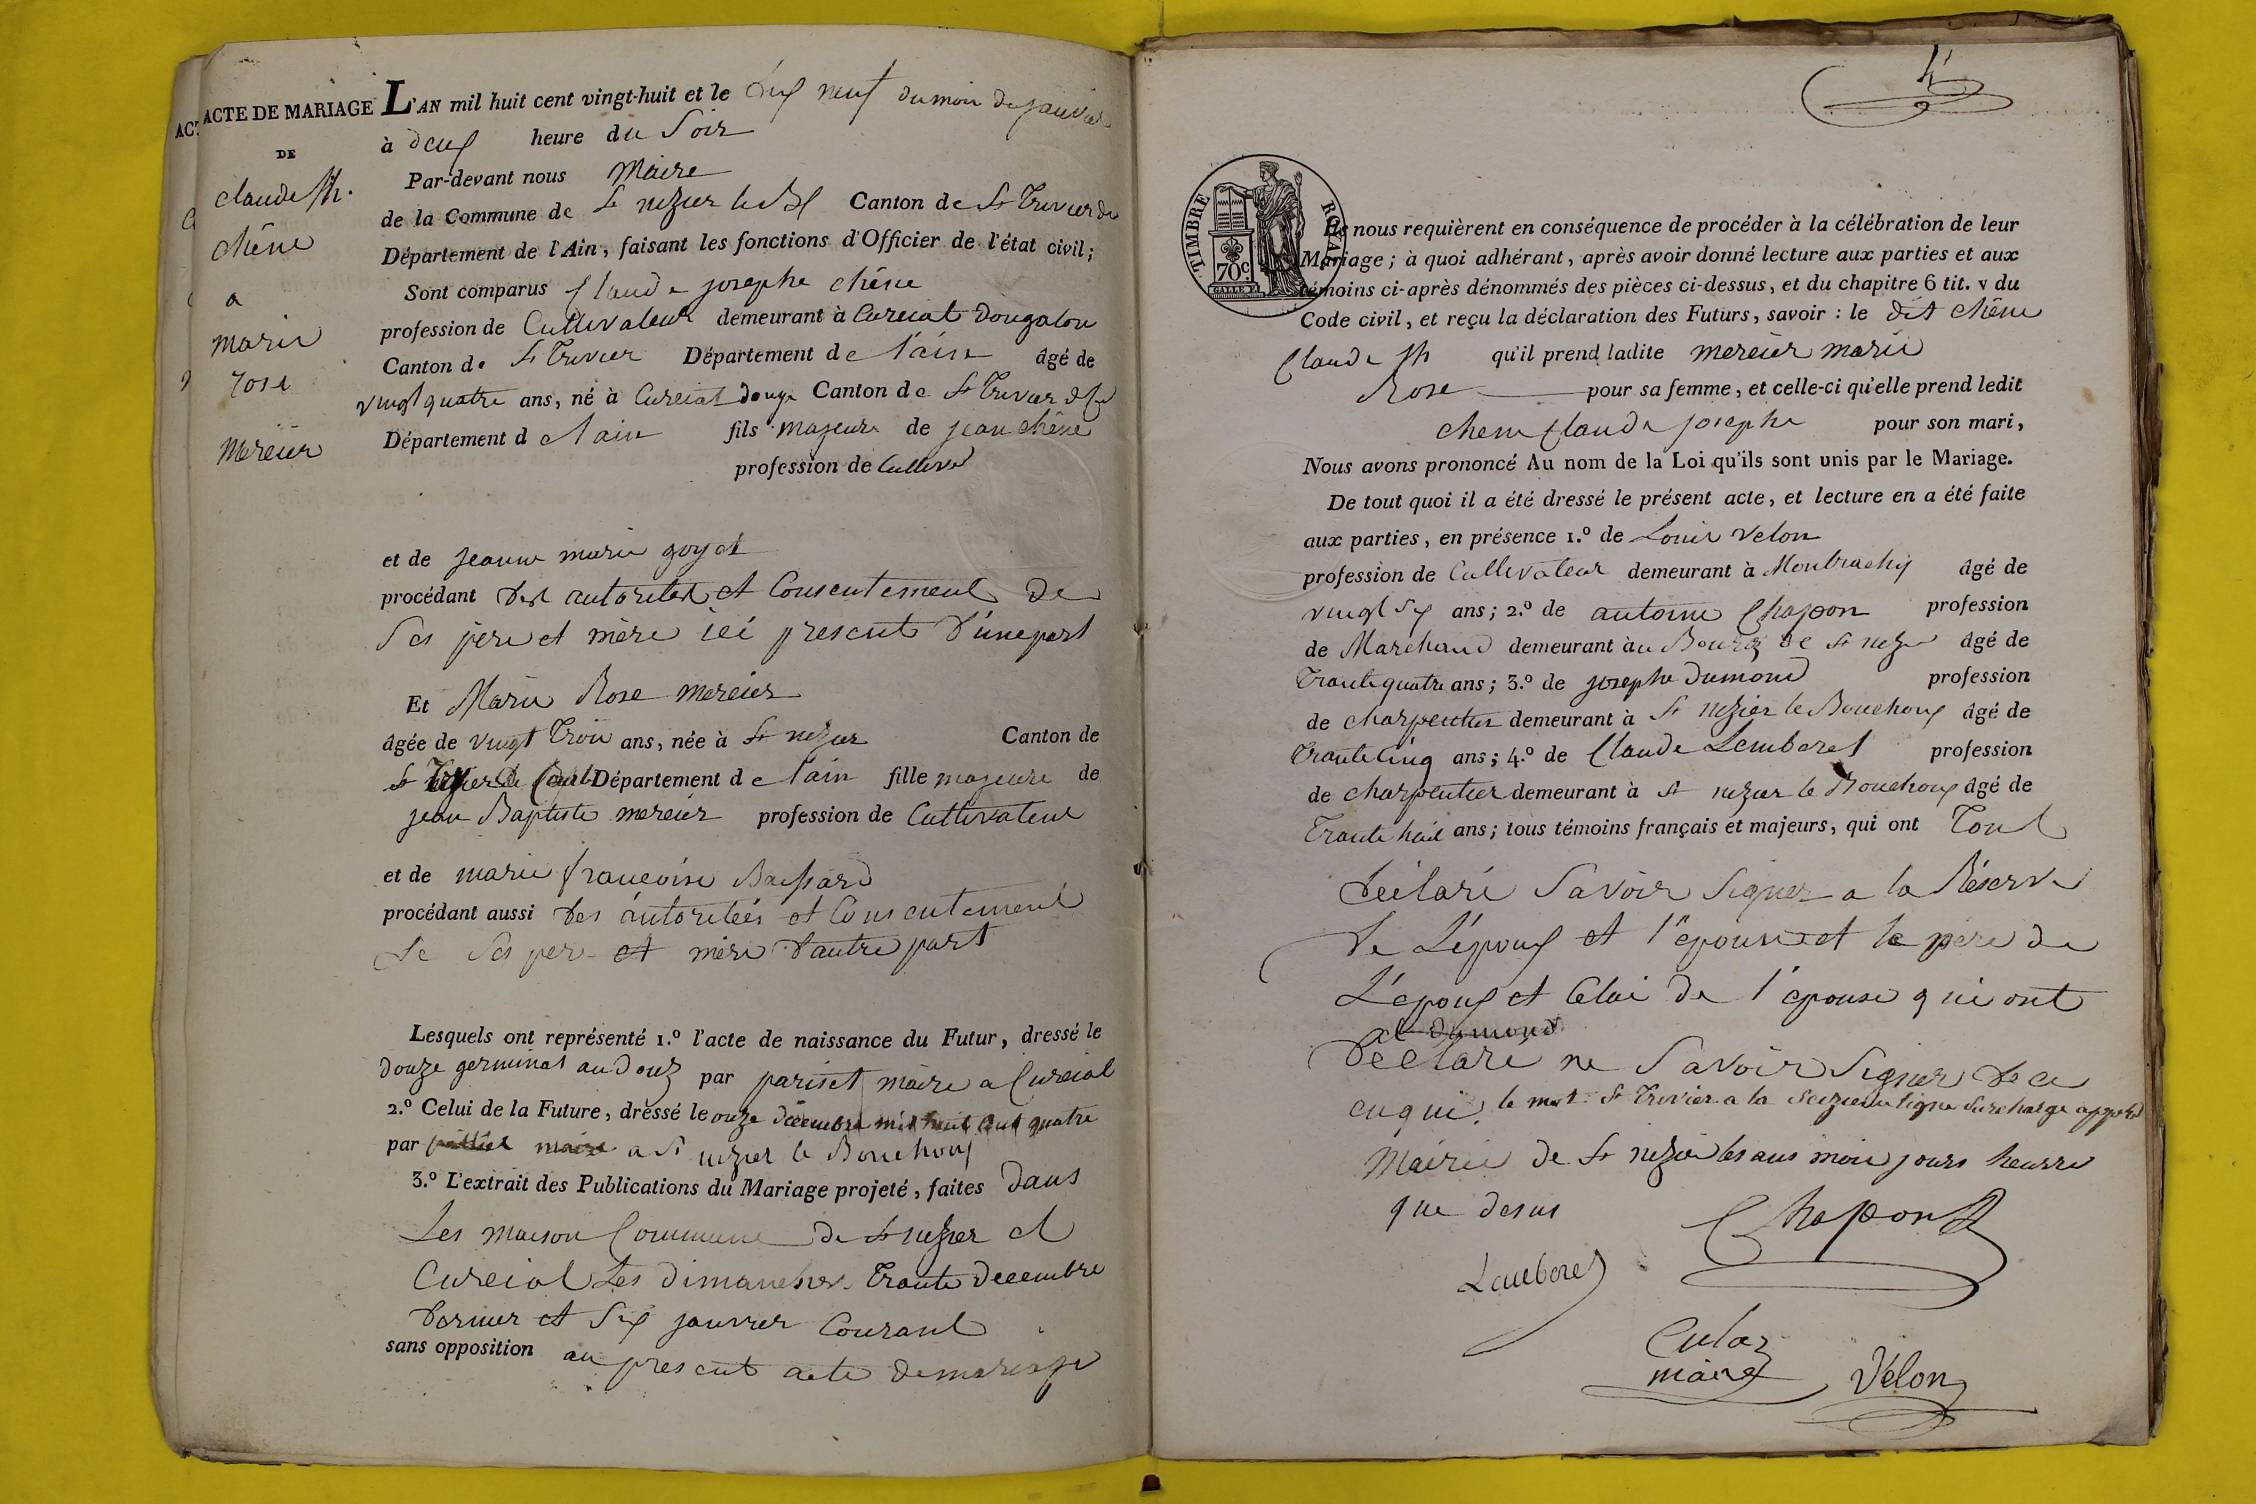 ACTE DE MARIAGE
DE
Claude Jh.
chêne
a
marie
rose
mercier
L'AN mil huit cent vingt-huit et le dix neuf du mois de janvier
à deux heure du Soir
Par-devant nous Maire
de la Commune de St nizier le Bx Canton de St Trivier de
Département de l'Ain, faisant les fonctions d'Officier de l'état civil;
Sont comparus Claude josephe chêne
profession de Cultivateur demeurant à Curciat dongalon
Canton de St Trivier Département de l'ain âgé de
vingt quatre ans, né à Curciat donga Canton de St Trivier de
Département de l'ain fils majeure de jean chêne
profession de Cultivat
et de jeanne marie goyet
procédant des autorités et Consentement de
Ses père et mère ici present d'une part
Et Marie Rose mercier
âgée de vingt Trois ans, née à St nizier Canton de
St Département de l'ain fille majeure de
jean Baptiste mercier profession de Cultivateur
et de marie françoise Bassard
procédant aussi des autoritées et Consentement
de Ses per et mère d'autre part
Lesquels ont représenté 1.º l'acte de naissance du Futur, dressé le
douze germinal an douz par pariset maire a Curcial
2.º Celui de la Future, dressé le onze décembre mil huit cent quatre
par maire a St nizier le Bouchoux
3.º L'extrait des Publications du Mariage projeté, faites dans
Les maison Commune de St nizier et
Curcial Les dimanches Trante decembre
dernier et Six janvier Courant
sans opposition au present acte de mariage
TIMBRE ROYAL
70c
GALLE F.
Ils nous requièrent en conséquence de procéder à la célébration de leur
Mariage; à quoi adhérant, après avoir donné lecture aux parties et aux
témoins ci-après dénommés des pièces ci-dessus, et du chapitre 6 tit. v du
Code civil, et reçu la déclaration des Futurs, savoir: le dit chêne
Claude Jh qu'il prend ladite mercier marie
Rose pour sa femme, et celle-ci qu'elle prend ledit
chene Claude josephe pour son mari,
Nous avons prononcé Au nom de la Loi qu'ils sont unis par le Mariage.
De tout quoi il a été dressé le présent acte, et lecture en a été faite
aux parties, en présence 1.º de Louis velon
profession de Cultivateur demeurant à Montrachy âgé de
vingt Six ans; 2.º de antoine Chapon profession
de Marchand demeurant àu Bourg de St nizier âgé de
Trante quatre ans; 3.º de josephe Dumond profession
de charpentier demeurant à St nizier le Bouchoux âgé de
Trante Cinq ans; 4.º de Claude Lemberet profession
de charpentier demeurant à St nizier le Bouchoux âgé de
Trante huit ans; tous témoins français et majeurs, qui ont Tous
déclaré Savoir Signer a la Réserve
de L'époux et l'epouse et le père de
L'epoux et Celui de l'épouse qui ont
et dumond
déclaré ne Savoir Signer de ce
enquis. le mot St Trivier a la Seizieme ligne Surcharge approu
Mairie de St nizier les ans mois jours heurre
que desus
Chapon
Lemberet
Culaz
maire
Velon